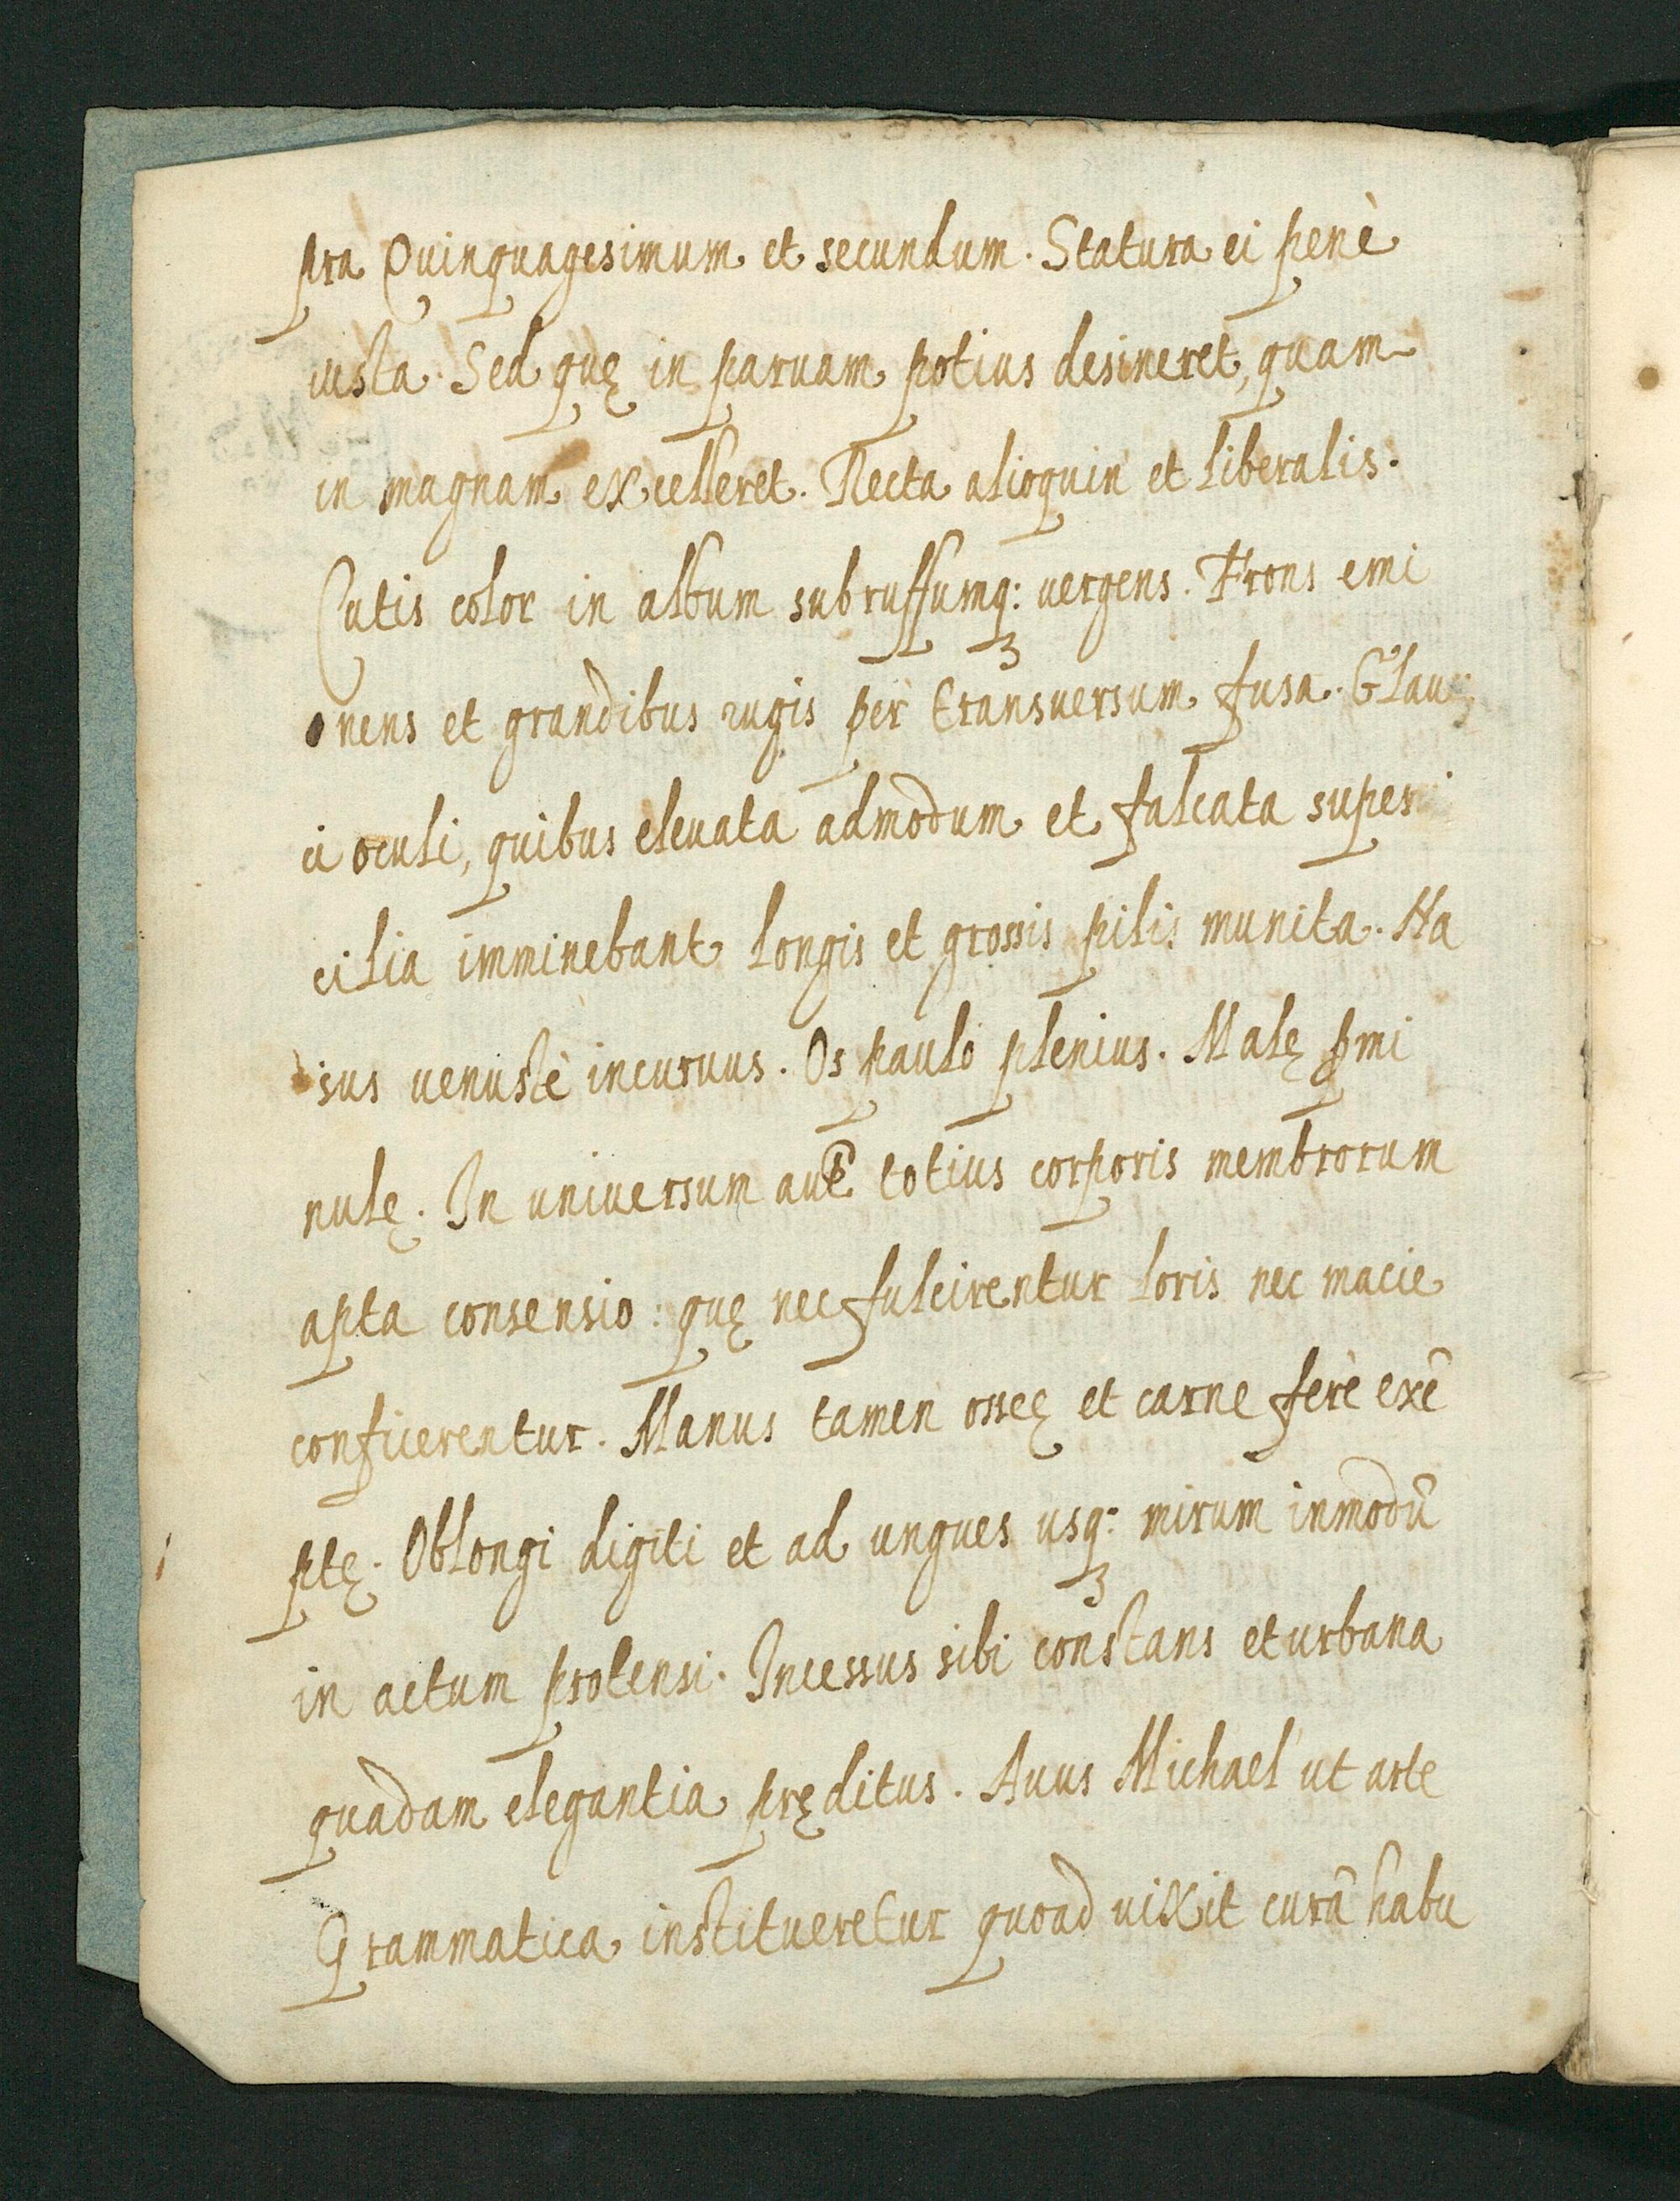 pra Quinquagesimum et secundum. Statura ei penè
iusta. Sed quę in paruam potius desineret, quam
in magnam excelleret. Recta alioquin et liberalis.
Cutis color in album subruffumq: uergens. Frons emi
nens et grandibus rugis per transuersum fusa. Glau
ci oculi, quibus eleuata admodum et falcata super
cilia imminebant longis et grossis pilis munita. Na
sus uenustè incuruus. Os paulo plenius. Malę pmi
nulę. In uniuersum aut̃ totius corporis membrorum
apta consensio: quę nec fulcirentur loris nec macie
conficerentur. Manus tamen osseę et carne ferè exẽ
ptę. Oblongi digiti et ad ungues usq: mirum inmodũ
in actum protensi. Incessus sibi constans et urbana
quadam elegantia pręditus. Auus Michael ut arte
Grammatica institueretur quoad uixit curã habu